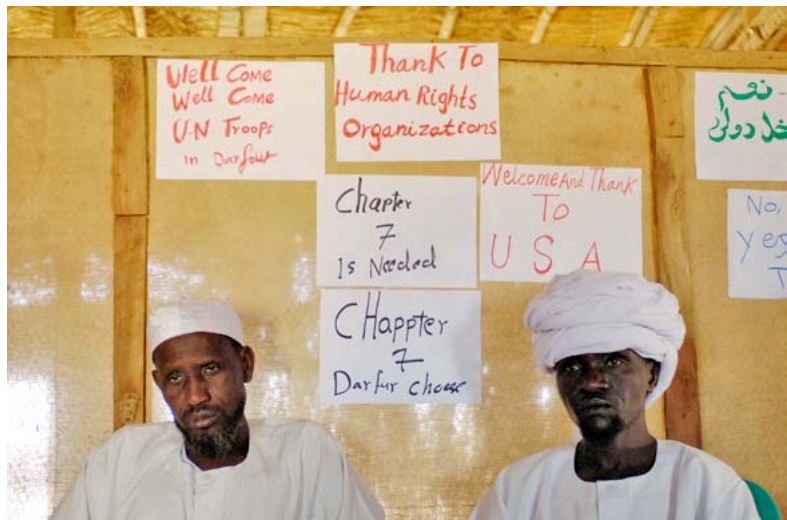 Well Come
Well Come
U.N Troops
in Darfour
Thank To
Human Rights
Organizations
Chapter
7
Is Needed
Welcome And Thank
To
U S A
CHappter
7
Darfur choose
نعم
دولى
No,
yes
T